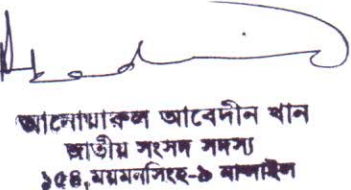 আনোয়ারুল আবেদীন খান
জাতীয় সংসদ সদস্য
১৫৪, ময়মনসিংহ-৯ নান্দাইল